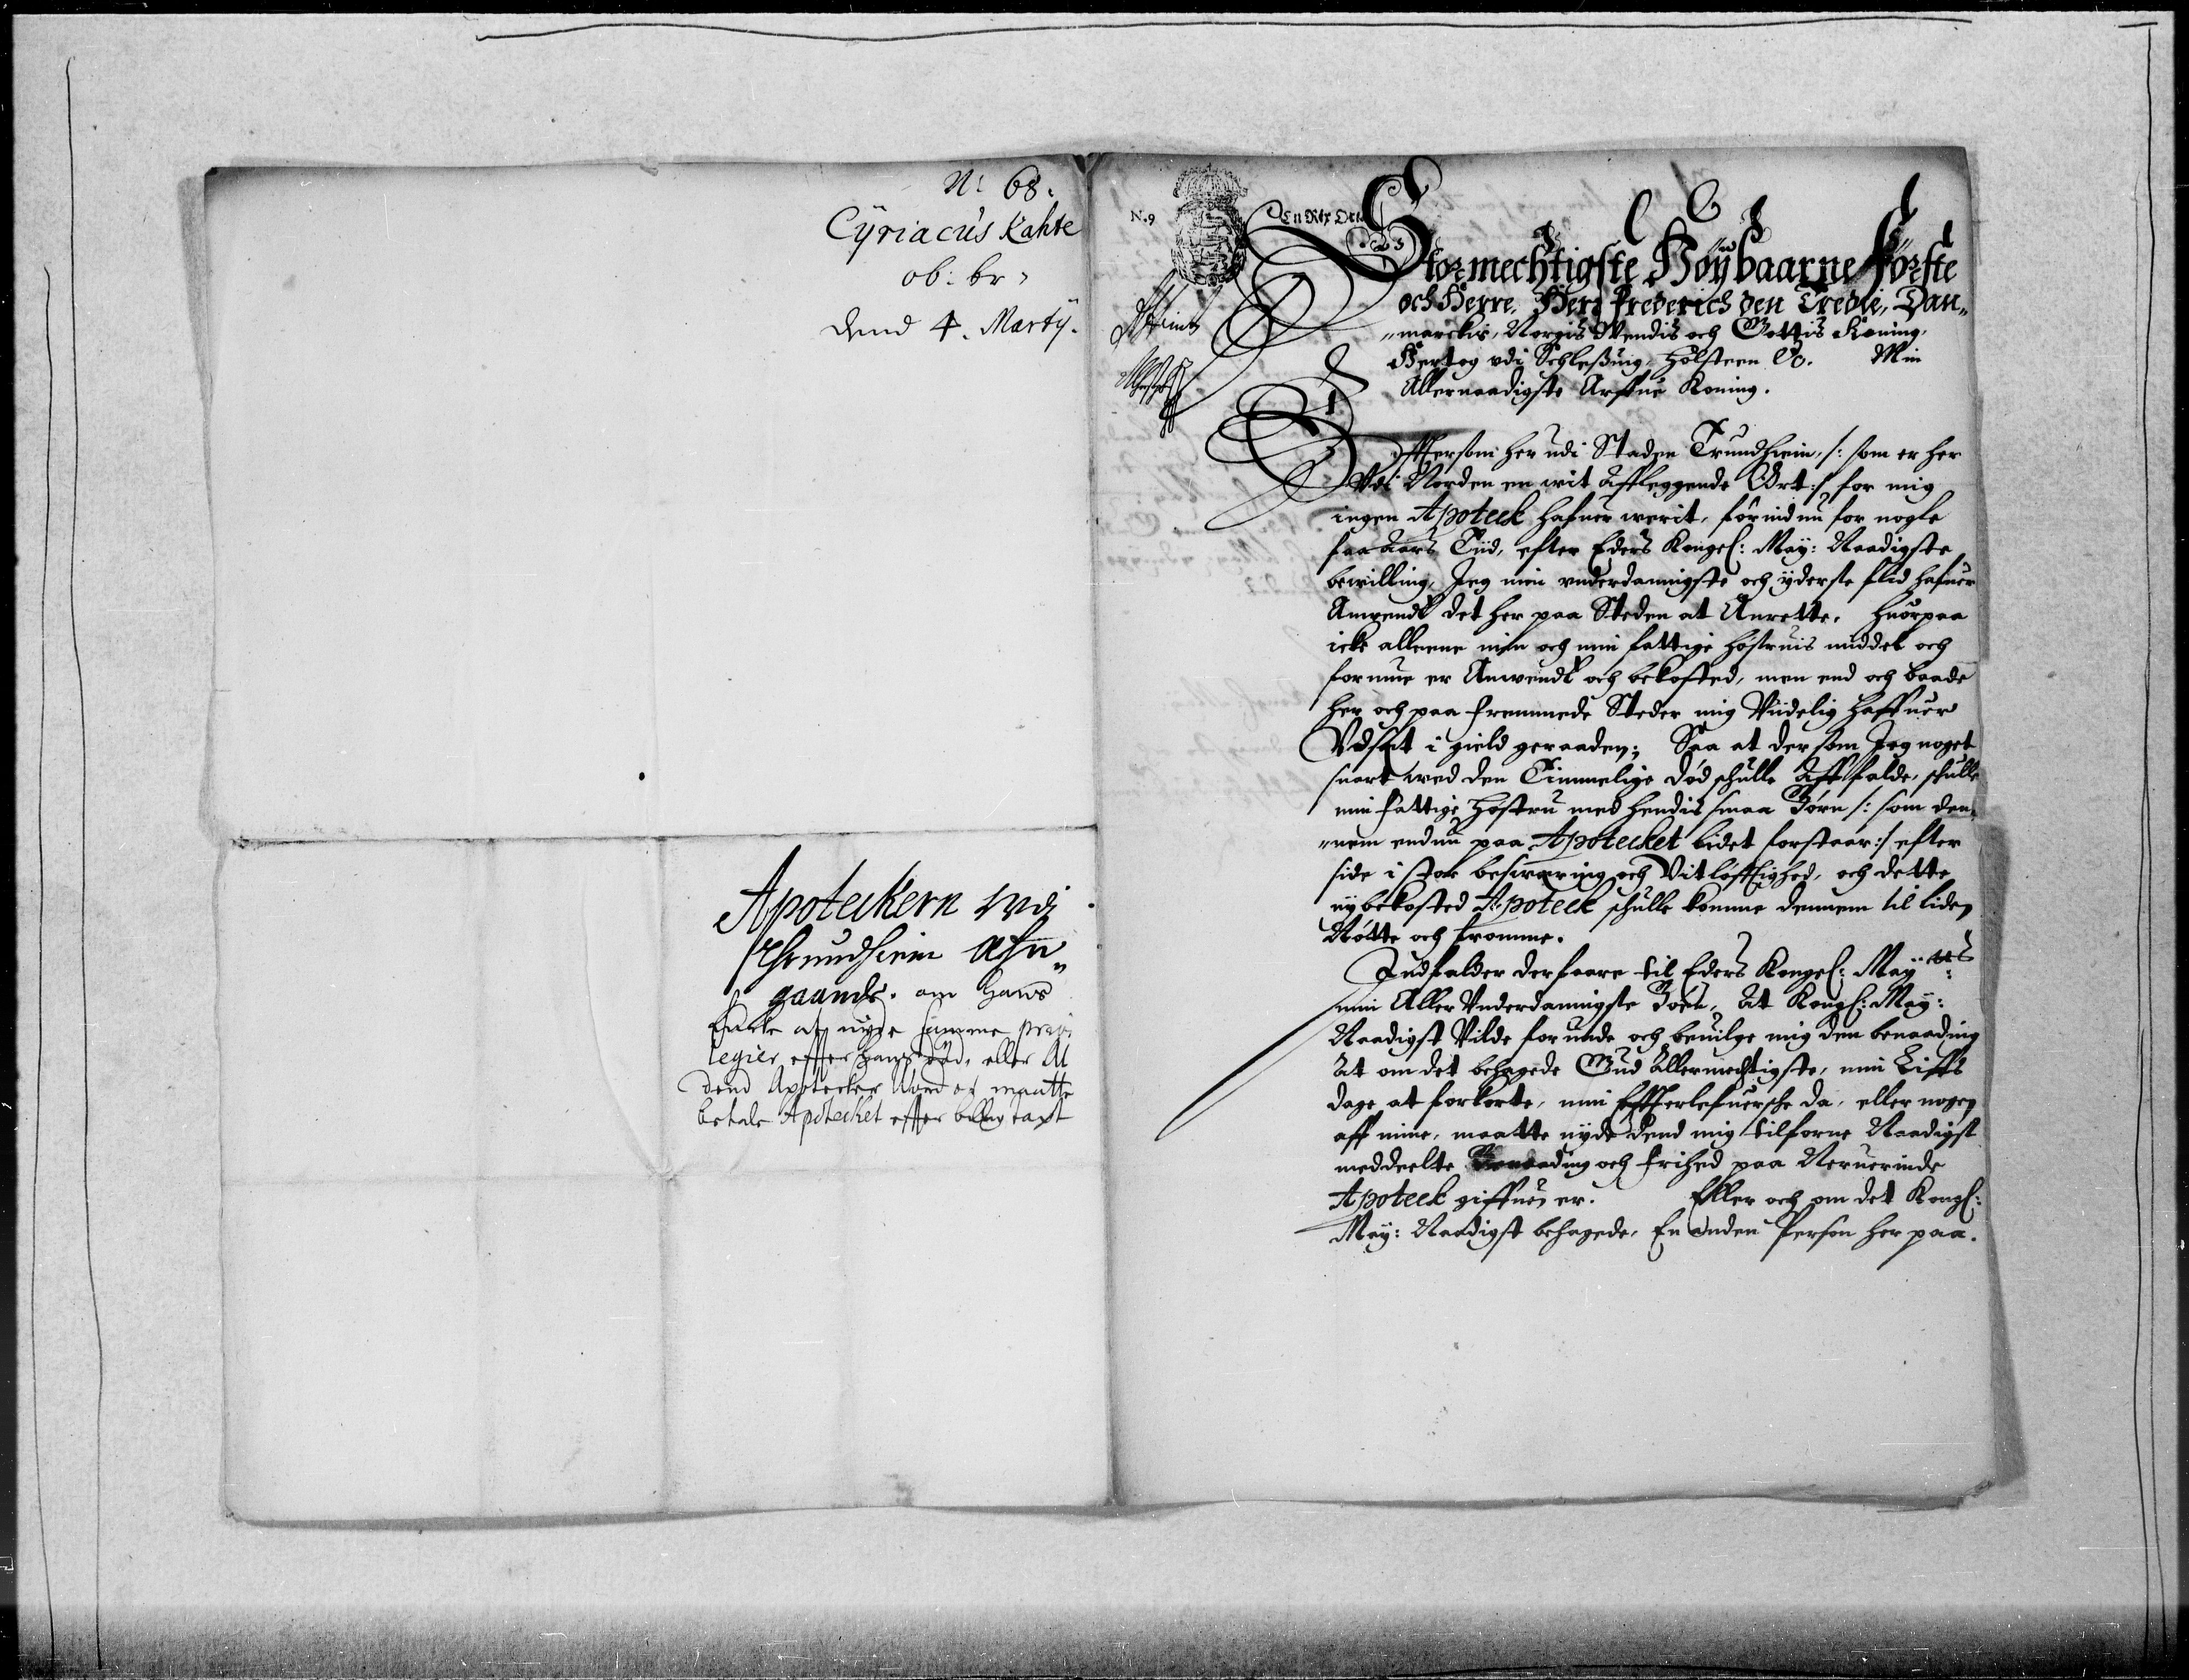 N: 68.
Cÿriacus Kahte
ob: br:
dend 4. Martÿ.
Apoteckern udi
Thrundhiem ahn„
gaande. om hans
Encke at nyde samme privi
legier effter hans død. eller At
dend Apotecker Uden es maatte
betale Apotecket effter billig taxt
N.9
En Rix Ort
Stormechtigste Höÿbaarne Förste
och Herre, Herr Frederich den Tredie, Dan„
„marckis, Norgis Wendis och Gottis Koning,
Hertog udi Schleßuig, Holsteen &c. Min
Allernaadigste Arffue Koning.
Effttersom her udi Staden Trundhiem, /: som er her
Udi Norden en wit affleggende Ort :/ for mig
ingen Apoteck hafuer werit, förind nu for nogle
faa Aars Tiid, efter Eders Kongel: Maÿ: Naadigste
bewilling, Jeg min underdannigste och ÿderste flid hafuer
Anwendt det her paa Steden at Anrette. Huorpaa
icke alleene min och min fattige höstruis middel och
formue er Anwendt och bekosted, men end och baade
her och paa fremmede Steder mig Viidelig haffuer
Udsat i gield geraaden; Saa at dersom Jeg noget
snart wed den Timmelige död schulle Aff falde, schulle
min fattige Höstru med hendis smaa Börn /: som den„
„nem endnu paa Apotecket lidet forstaar :/ efter
side i stor besswæring och Vitlöfftighed, och dette
nÿ bekosted Apoteck schulle komme dennem til liden
Nötte och fromme.
Indfalder derfaare til Eders Kongel: Maÿtts
min Aller Underdannigste Böen, At Kongl: Maÿ:
Naadigst Vilde forunde och beuilge mig den benaading
At om det behagede Gud Allermechtigste, min Liffs
dage at forkorte, min Effterlefuersche da, eller nogen
aff mine, maatte nÿde dend mig tilforne Naadigst
meddeelte Benaading och frihed paa Neruerinde
Apoteck giffuen er. Eller och om det Kongl:
Maÿ: Naadigst behagede, En Anden Person her paa.